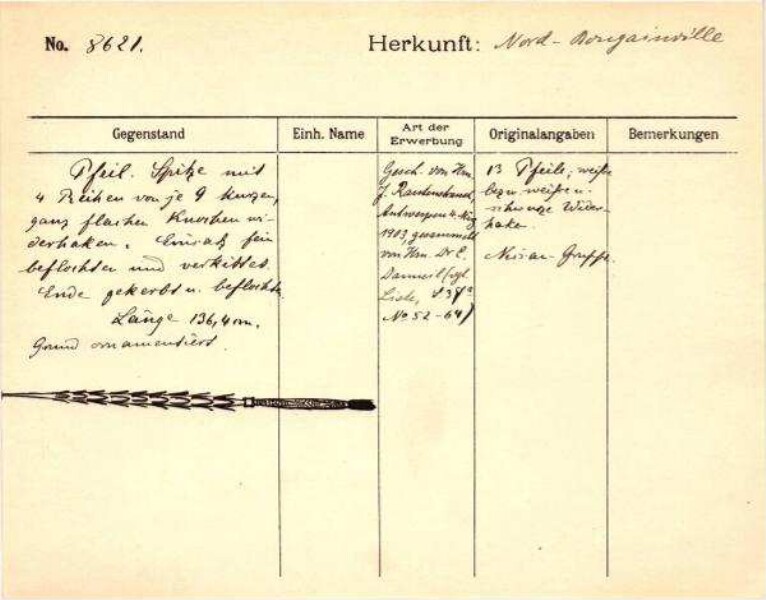 No. 8621.
Herkunft: Nord-Bougainville
Gegenstand
Einh. Name
Art der Erwerbung
Originalangaben
Bemerkungen
Pfeil. Spitze mit
4 Reihen von je 9 kurzen,
ganz flachen Knochenwi-
derhaken. Einsatz fein
beflochten und verkittet.
Ende gekerbt u. beflochten.
Länge 136,4 cm.
Grund ornamentiert.
Gesch. von Hrn.
J. Rautenstrauch,
Antwerpen
1903, gesammelt
von Hrn. Dr. E.
Liste,
No 52-64)
13 Pfeile; weiße
bezw. weiße u.
schwarze Wider-
haken.